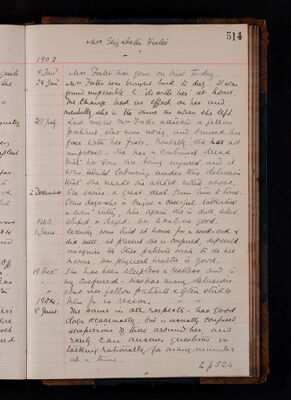 514
Mrs Elizabeth Foster
1902
8 Jany Mrs Foster has gone on trial to day
28 Jany Mrs Foster was brought back to day It was
found impossible to do with her at home.
The Change had no effect on her and
mentally she is the same as when she left
29 July Last night Mrs Foster attacked a fellow
patient who was noisy and bruised her
face with her fists. Mentally she was not
improved. She has a delusional dread
that her sons are being injured and it
was whilst labouring under this delusion
that she made the attack noted above.
2 December She varies a great deal from time to time.
Some days she is bright & cheerful, talkative
& even witty, then again she is dull silent
stupid & dazed. Her b.h. is good.
1903.
1 June Recently was tried at home for a week and
did well. At present she is confused, depressed
imagines the other patients wish to do her
harm. Her physical health is good.
19 Decr She has been sleepless & restless and is
very confused. Has many delusions
about her fellow patients & often strikes
them for no reason.
1904.
8 June The same in all respects. Has good
days occasionally but is usually confused
suspicious of those around her, and
rarely can answer questions or
talking rationally for many minutes
at a time.
to p 524